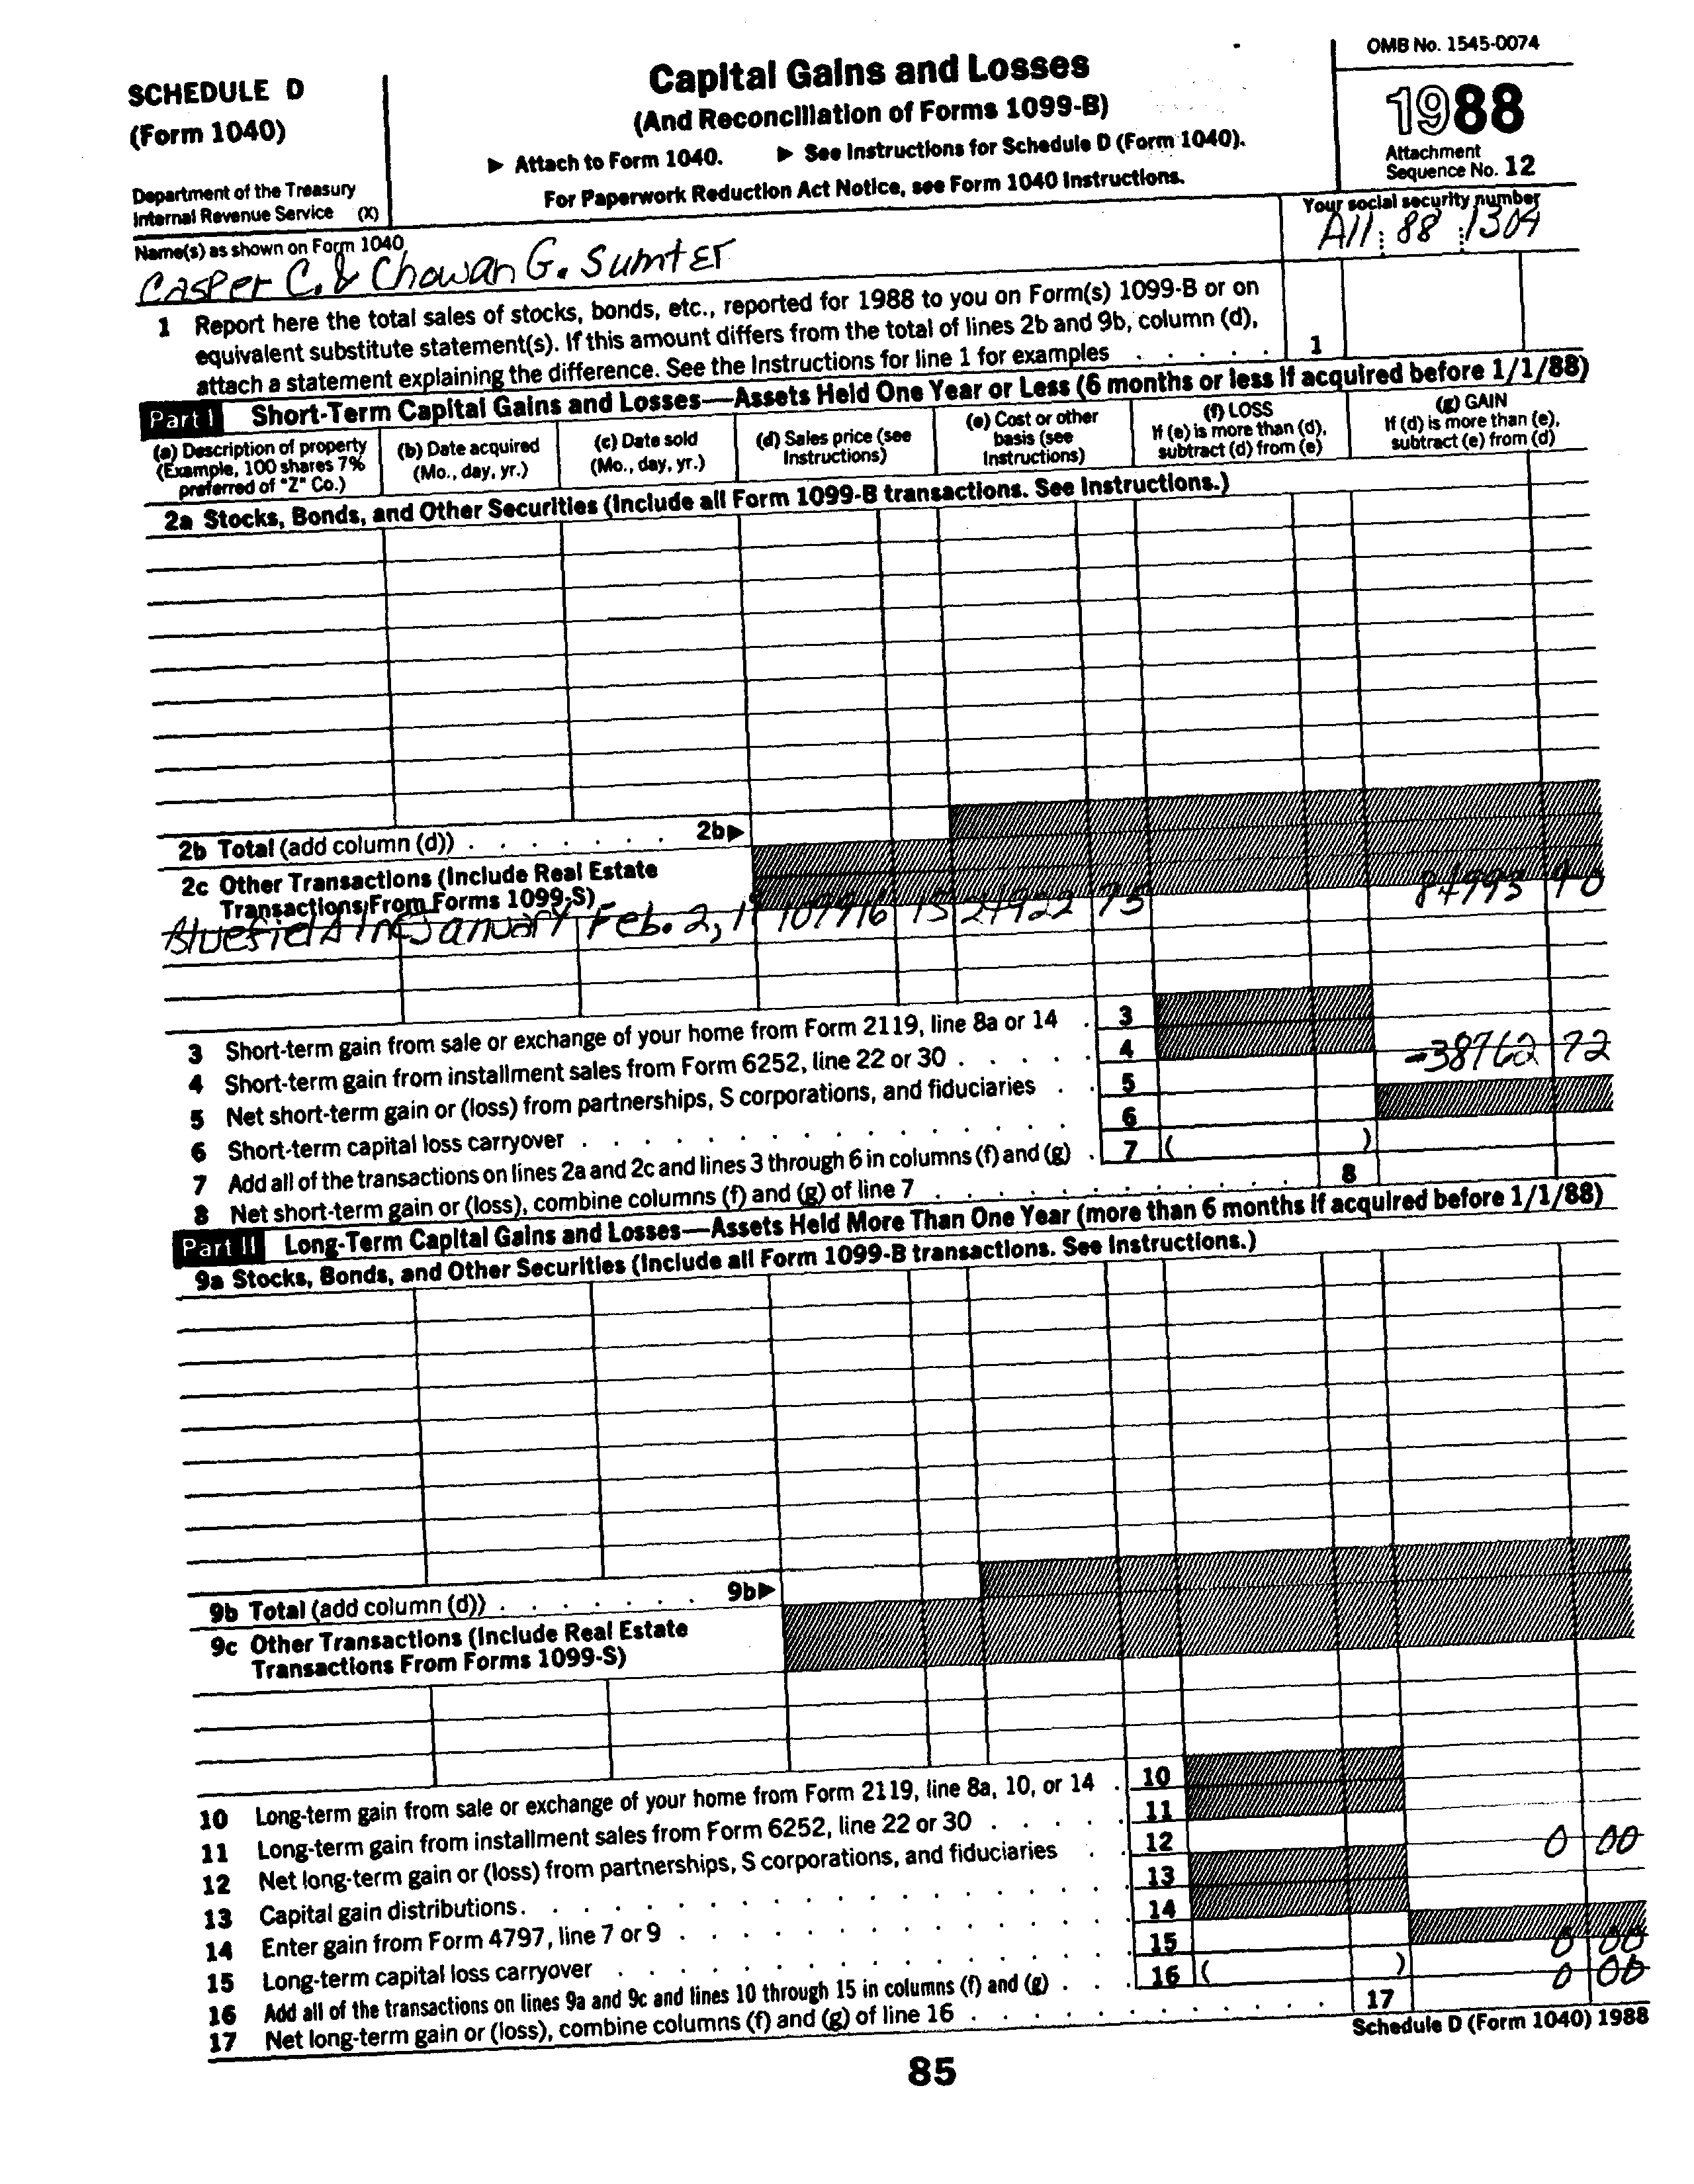 SCHEDULE D
(Form 1040)
Department of the Treasury
Internal Revenue Service (X)
Capital Gains and Losses
(And Reconciliation of Forms 1099-B)
▶ Attach to Form 1040. ▶ See Instructions for Schedule D (Form 1040).
For Paperwork Reduction Act Notice, see Form 1040 Instructions.
OMB No. 1545-0074
1988
Attachment
Sequence No. 12
Name(s) as shown on Form 1040
Casper C. & Chowan G. Sumter
Your social security number
A11 88 1304
1 Report here the total sales of stocks, bonds, etc., reported for 1988 to you on Form(s) 1099-B or on
equivalent substitute statement(s). If this amount differs from the total of lines 2b and 9b, column (d),
attach a statement explaining the difference. See the Instructions for line 1 for examples . . . . . 1
Part I Short-Term Capital Gains and Losses—Assets Held One Year or Less (6 months or less if acquired before 1/1/88)
(a) Description of property
(Example, 100 shares 7%
preferred of "Z" Co.)
(b) Date acquired
(Mo., day, yr.)
(c) Date sold
(Mo., day, yr.)
(d) Sales price (see
Instructions)
(e) Cost or other
basis (see
Instructions)
(f) LOSS
If (e) is more than (d),
subtract (d) from (e)
(g) GAIN
If (d) is more than (e),
subtract (e) from (d)
2a Stocks, Bonds, and Other Securities (Include all Form 1099-B transactions. See Instructions.)
2b Total (add column (d)) . . . . . . . 2b▶
2c Other Transactions (Include Real Estate
Transactions From Forms 1099-S)
January Feb. 2, 1 109916 15 24922 75 84993 40
3 Short-term gain from sale or exchange of your home from Form 2119, line 8a or 14 . 3
4 Short-term gain from installment sales from Form 6252, line 22 or 30 . . . . . 4
5 Net short-term gain or (loss) from partnerships, S corporations, and fiduciaries . . 5 -38762 72
6 Short-term capital loss carryover . . . . . . . . . . . . . . 6
7 Add all of the transactions on lines 2a and 2c and lines 3 through 6 in columns (f) and (g) . 7 ( )
8 Net short-term gain or (loss), combine columns (f) and (g) of line 7 . . . . . . . . . . . 8
Part II Long-Term Capital Gains and Losses—Assets Held More Than One Year (more than 6 months if acquired before 1/1/88)
9a Stocks, Bonds, and Other Securities (Include all Form 1099-B transactions. See Instructions.)
9b Total (add column (d)) . . . . . . . 9b▶
9c Other Transactions (Include Real Estate
Transactions From Forms 1099-S)
10 Long-term gain from sale or exchange of your home from Form 2119, line 8a, 10, or 14 . 10
11 Long-term gain from installment sales from Form 6252, line 22 or 30 . . . . . 11
12 Net long-term gain or (loss) from partnerships, S corporations, and fiduciaries . . 12 0 00
13 Capital gain distributions . . . . . . . . . . . . . . . 13
14 Enter gain from Form 4797, line 7 or 9 . . . . . . . . . . . . 14
15 Long-term capital loss carryover . . . . . . . . . . . . . . 15 0 00
16 Add all of the transactions on lines 9a and 9c and lines 10 through 15 in columns (f) and (g) . . . 16 ( ) 0 00
17 Net long-term gain or (loss), combine columns (f) and (g) of line 16 . . . . . . . . . . . 17
Schedule D (Form 1040) 1988
85